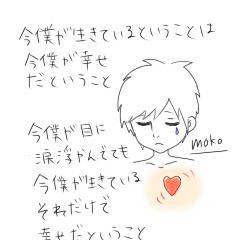 今僕が生きているということは
今僕が幸せ
だということ
今僕が目に
涙浮かんでても
今僕が生きている
それだけで
幸せだということ
moko